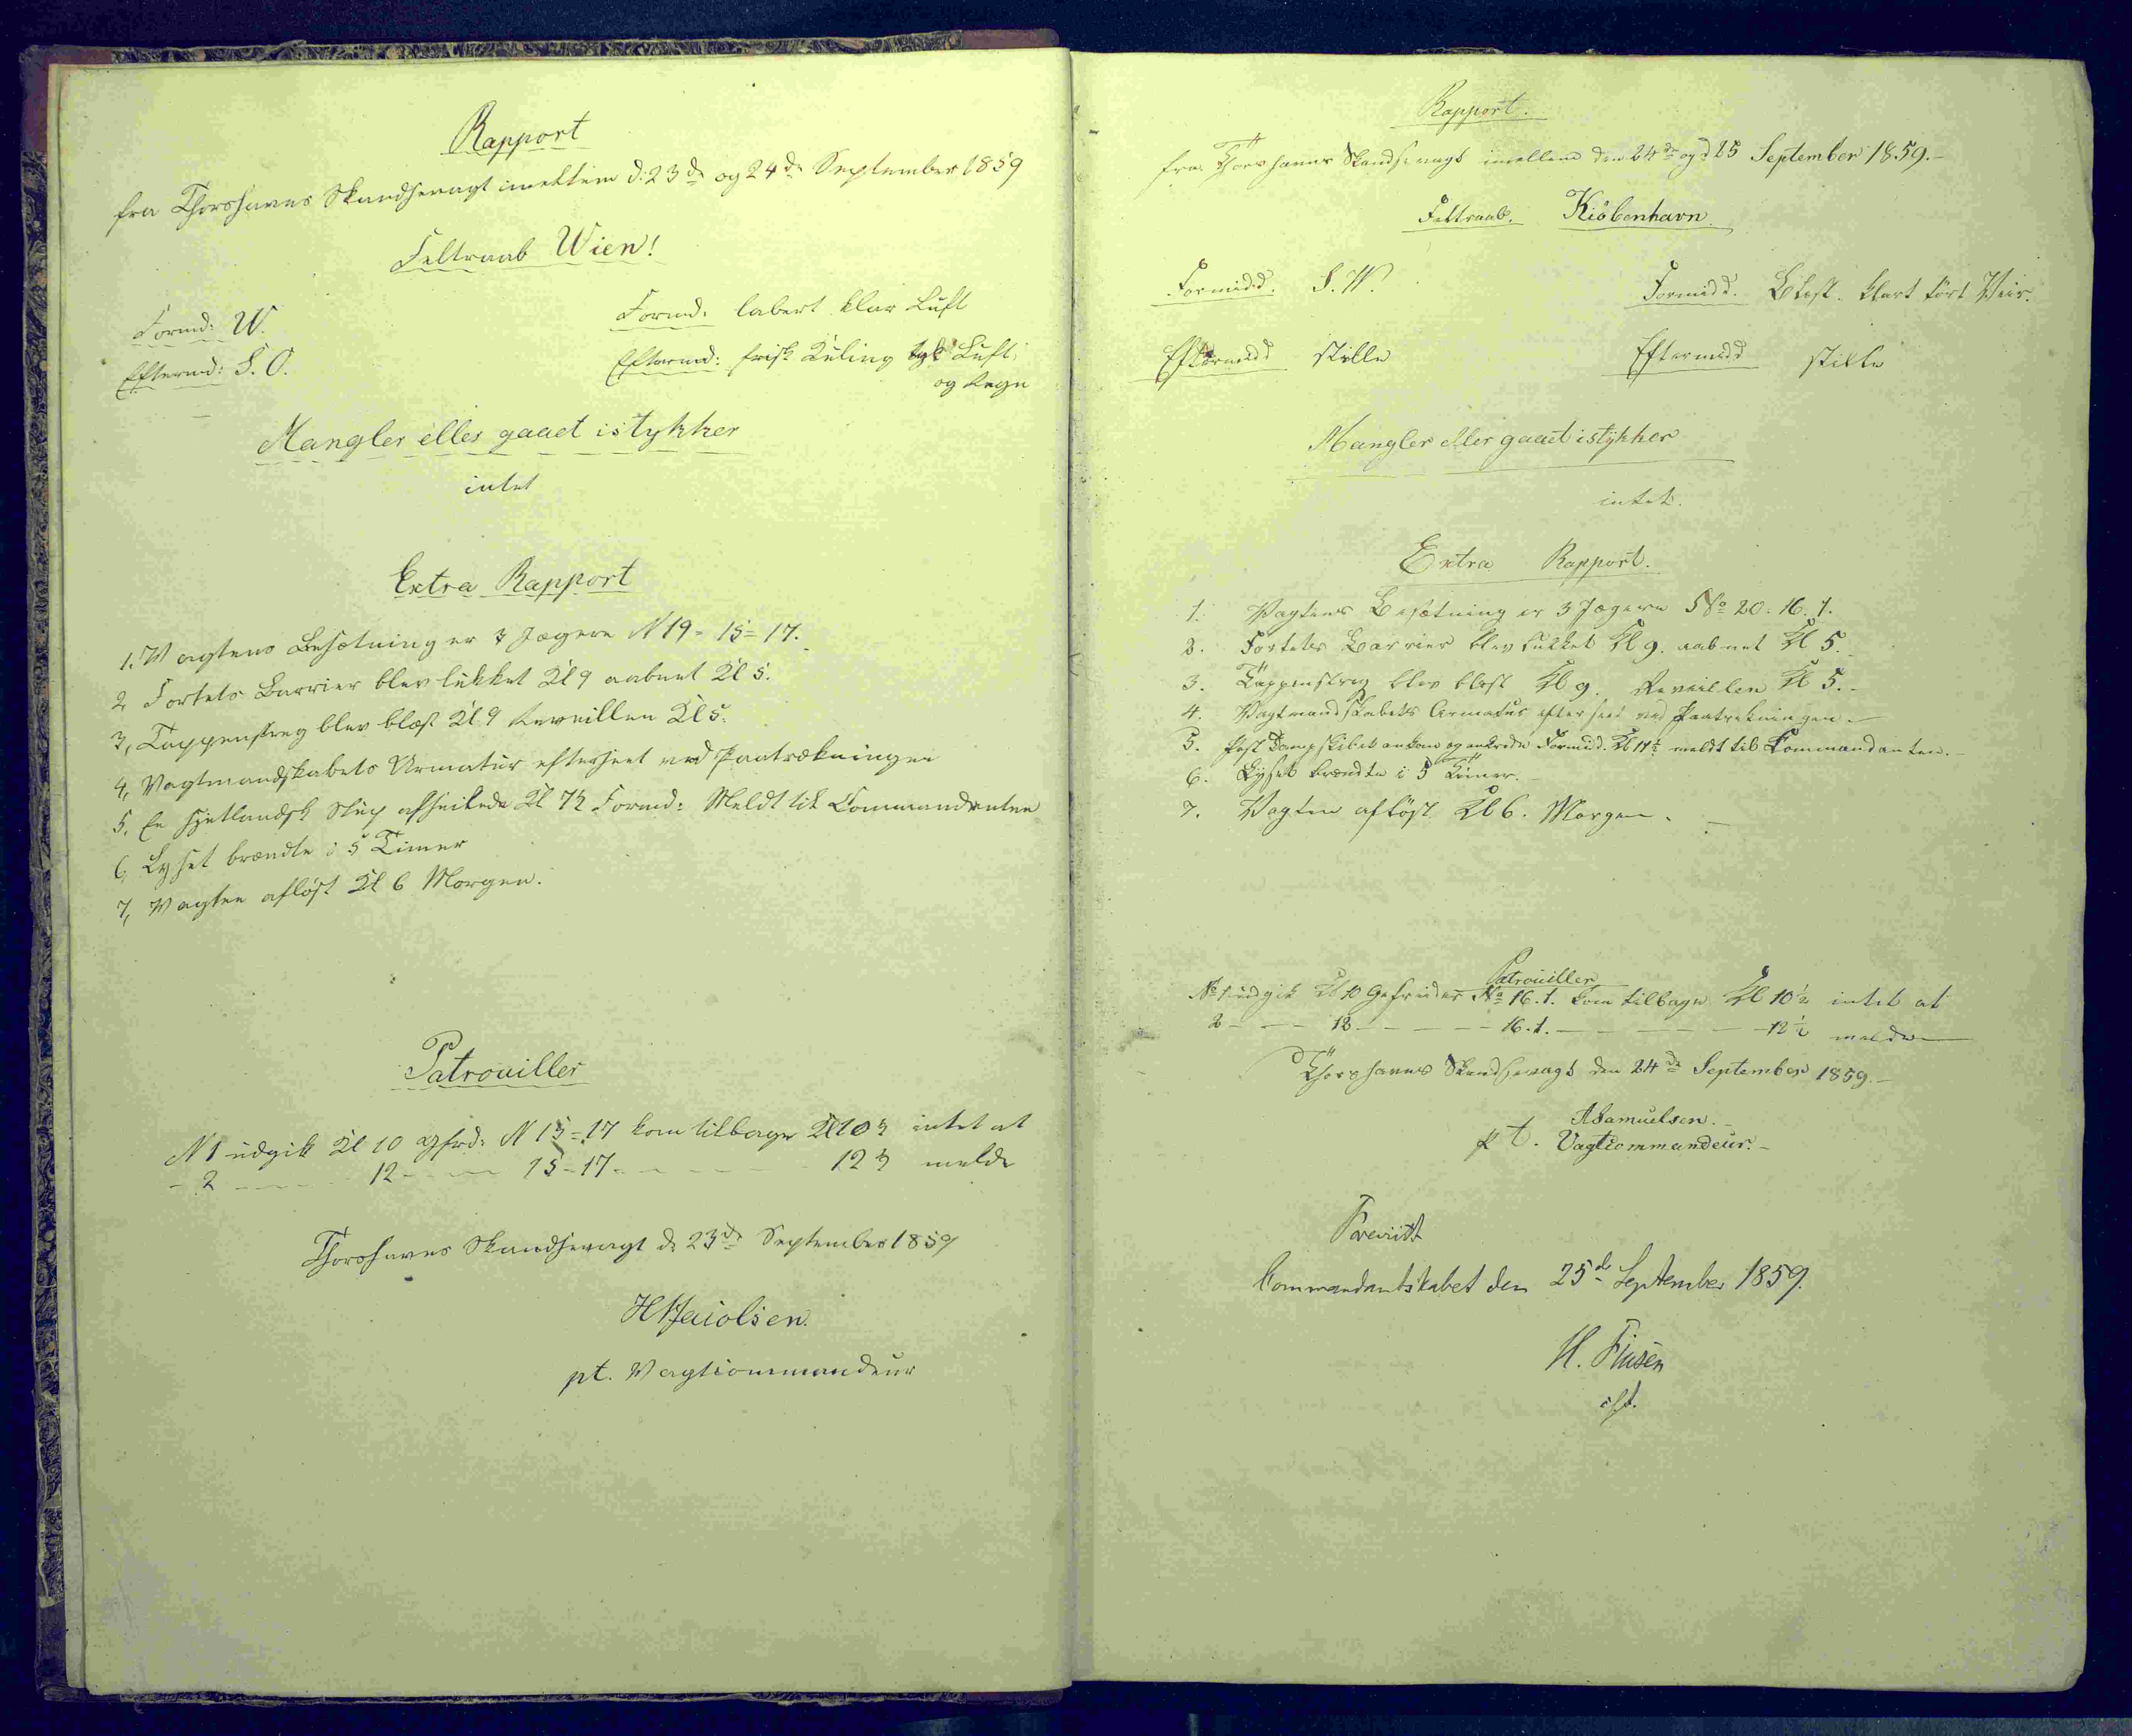 Rapport
fra Thorshavns Skandsevagt imellem d: 23de og 24de September 1859
Feltraab Wien!
Formd: W.
Formd: labert klar Luft
Eftermd: S. O.
Eftermd: frisk Kuling tyk Luft
og Regn
Mangler eller gaaet istykker
intet
Extra Rapport
1. Vagtens Besætning er 3 Jægere N 19 = 15 = 17.
2 Fortets Barrier blev lukket Kl 9 aabnet Kl 5.
3, Tappenstreg blev blæst Kl 9 Reveillen Kl 5.
4, Vagtmandskabets Armatur efterseet ved Paatrækningen
5. En hjetlandsk Slup afseilede Kl 7½ Formd: Meldt til Commandanten
6, Lyset brændte i 5 Timer
7, Vagten afløst Kl 6 Morgen.
Patrouiller
N 1 udgik Kl 10 Gfrd: N 15 = 17 kom tilbage Kl 10½ intet at
- 2 - - - 12 - - - 15 - 17 - - - - 12½ melde
Thorshavns Skandsevagt d: 23de September 1859
pt. Vagtcommandeur
Rapport.
fra Thorshavns Skandsevagt imellem den 24de og d 25 September 1859.-
Feltraab. Kiöbenhavn.
Formidd. S. W.
Formidd. Blæst. klart tört Veir.
Eftermidd stille
Eftermidd stille
Mangler eller gaaet istykker
intet.
Extra Rapport.
1. Vagtens Besætning er 3 Jægere No 20. 16. 1.
2. Fortets Barrier blev lukket Kl 9. aabnet Kl 5.
3. Tappenstreg blev blæst Kl 9. Reveillen Kl 5.-
4. Vagtmandskabets Armatur efterseet ved Paatrækningen.-
5. Post Dampskibet ankom og ankrede Formidd. Kl 11½ meldt til Kommandanten.-
6. Lyset brændte i 5 Timer.-
7. Vagten aflöst Kl 6. Morgen. -
Patrouiller
No 1 udgik Kl 10 Gefreider No 16. 1. kom tilbage Kl 10½ intet at
2 - - - 12 - - - - 16. 1. - - - - 12½ melde
Thorshavns Skandsevagt den 24de September 1859.-
A Samuelsen.-
p t. Vagtcommandeur.-
Commandantskabet den 25de September 1859.